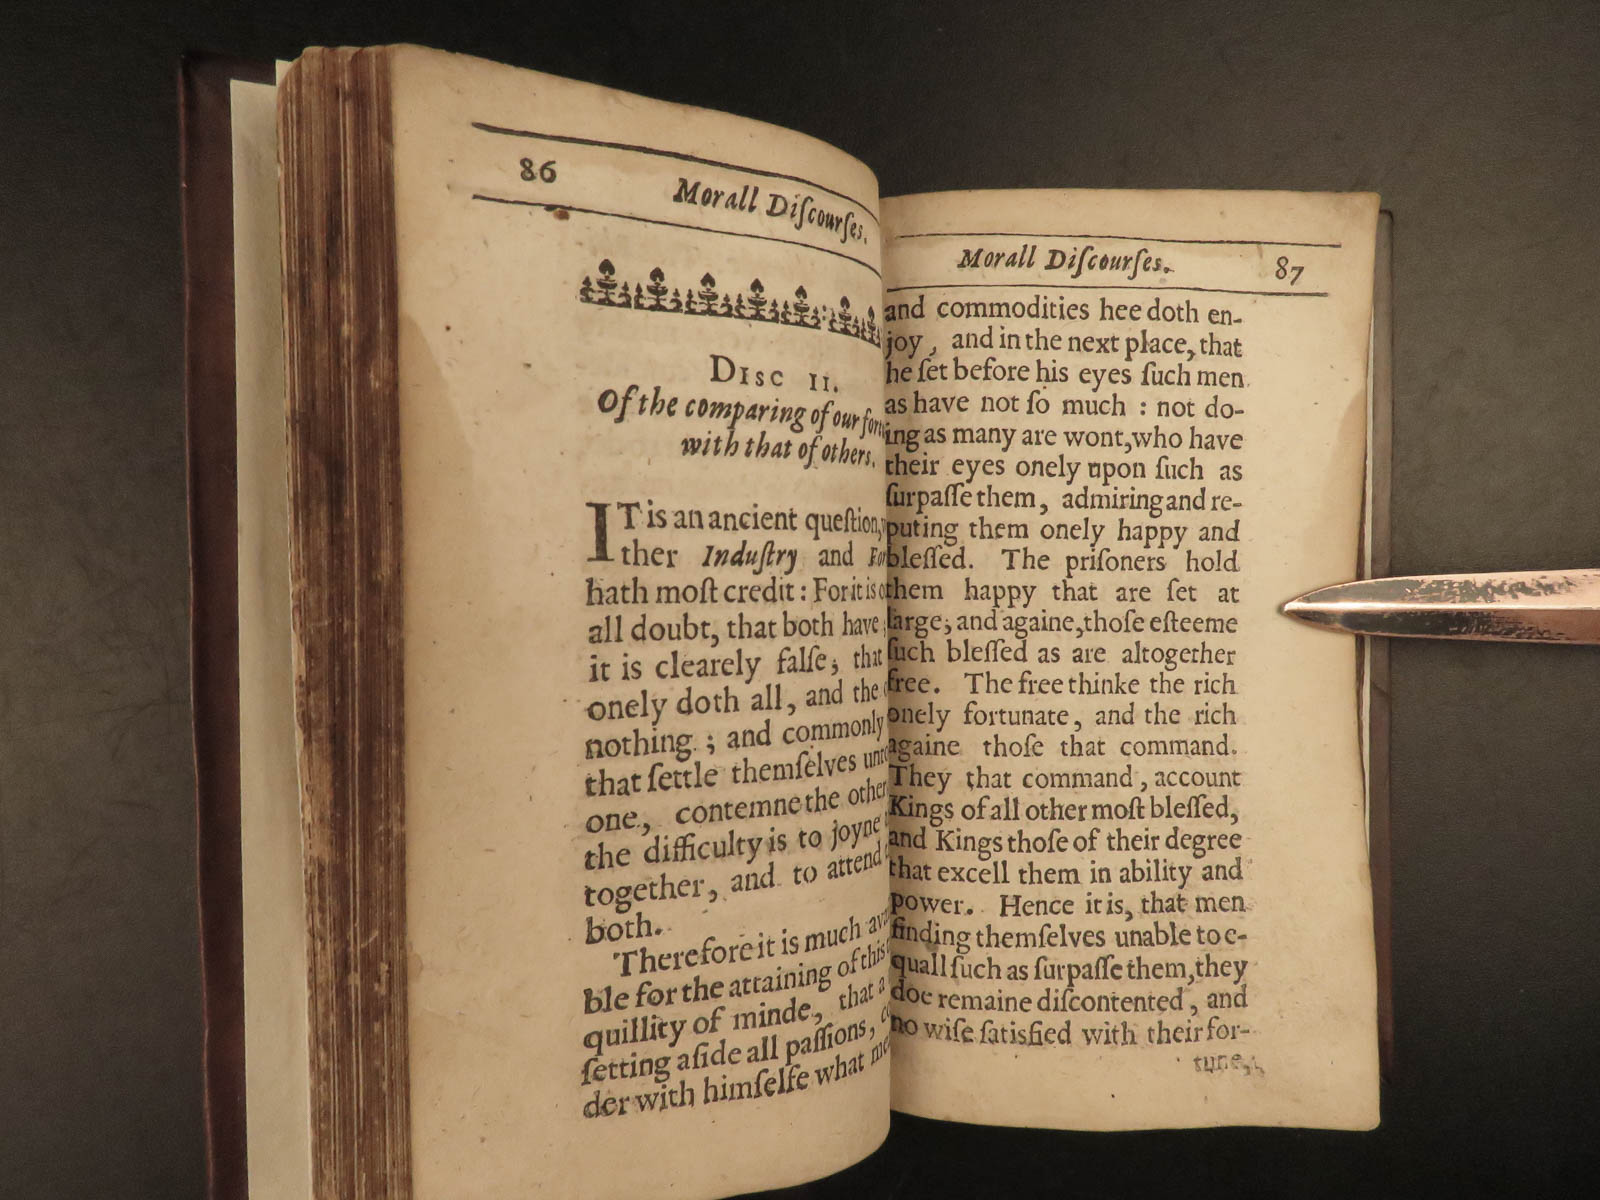 86
Morall Diſcourſes.
DISC II.
Of the comparing of our
with that of others.
IT is an ancient queſtion,
ther Induſtry and
hath moſt credit: For it is
all doubt, that both have
it is clearely falſe; that
onely doth all, and the
nothing.; and commonly
that ſettle themſelves
one., contemne the other
the difficulty is to joyne
together, and to attend
both.
Therefore it is much
ble for the attaining of this
quillity of minde, that a
ſetting aſide all paſſions,
der with himſelfe what
Morall Diſcourſes.
87
and commodities hee doth en-
joy, and in the next place, that
he ſet before his eyes ſuch men
as have not ſo much : not do-
ing as many are wont, who have
their eyes onely upon ſuch as
ſurpaſſe them, admiring and re-
puting them onely happy and
bleſſed. The priſoners hold
them happy that are ſet at
large; and againe, thoſe eſteeme
ſuch bleſſed as are altogether
free. The free thinke the rich
onely fortunate, and the rich
againe thoſe that command.
They that command, account
Kings of all other moſt bleſſed,
and Kings thoſe of their degree
that excell them in ability and
power. Hence it is, that men
finding themſelves unable to e-
quall ſuch as ſurpaſſe them, they
doe remaine diſcontented, and
no wiſe ſatisfied with their for-
tune,